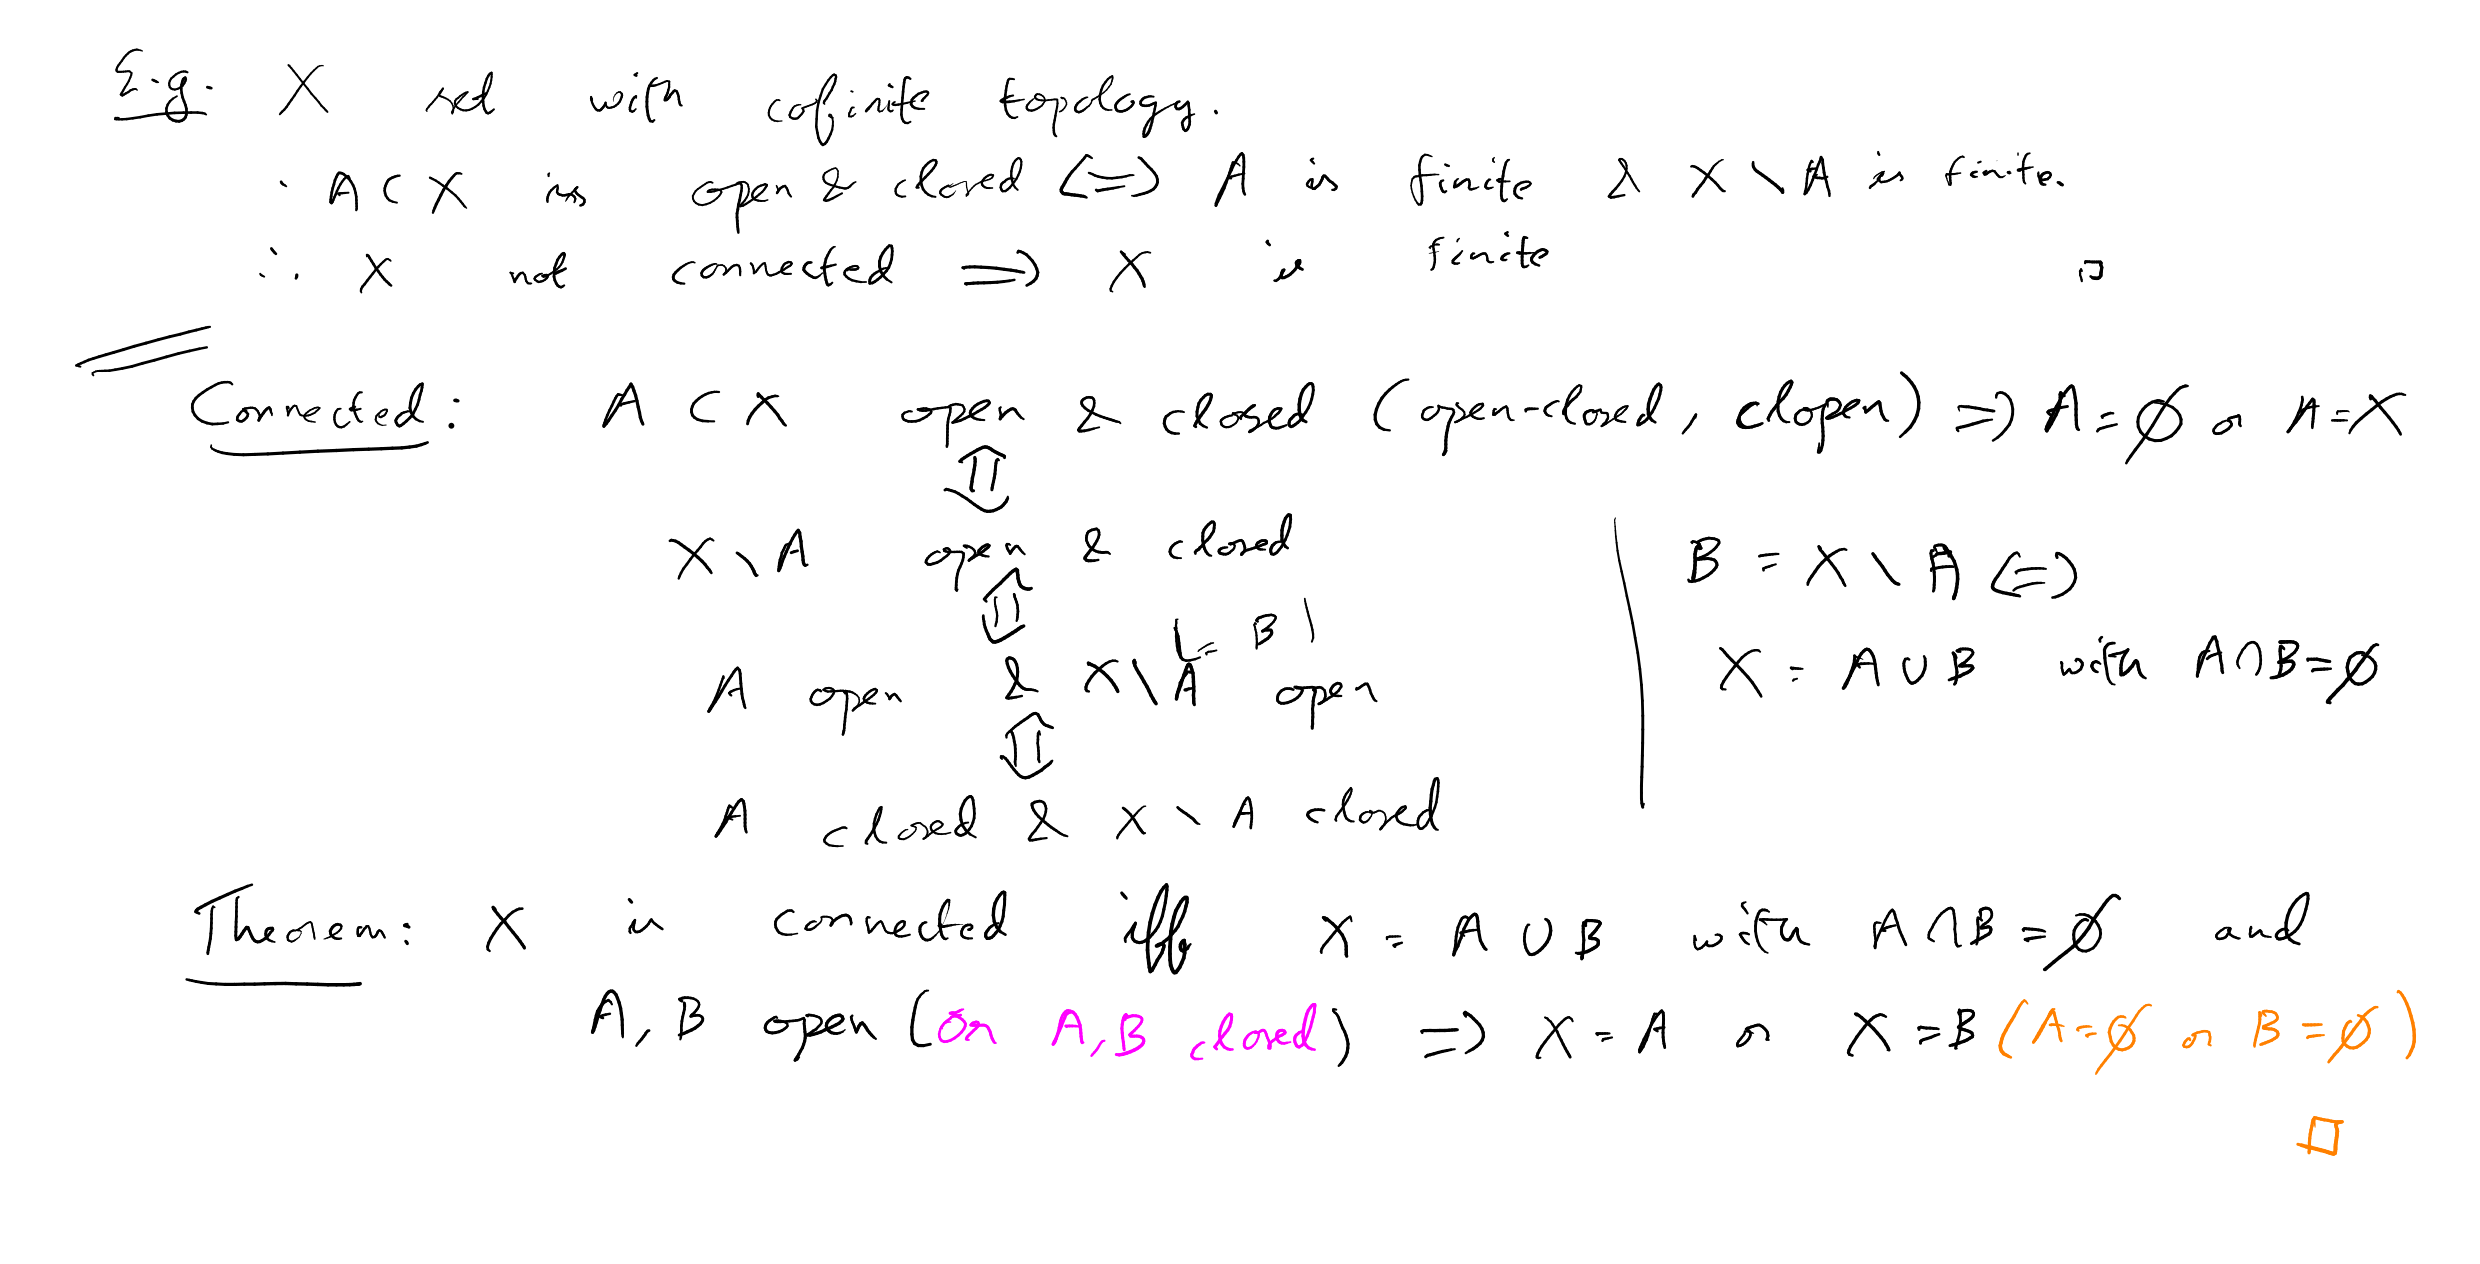 E.g. X set with cofinite topology.
∵ A ⊂ X is open & closed ⟺ A is finite & X \ A is finite.
∴ X not connected ⟹ X is finite □
Connected: A ⊂ X open & closed (open-closed, clopen) ⟹ A = ∅ or A = X
⇕
X \ A open & closed
⇕
(= B)
A open & X \ A open
⇕
A closed & X \ A closed
B = X \ A ⟺
X = A ∪ B with A ∩ B = ∅
Theorem: X is connected iff X = A ∪ B with A ∩ B = ∅ and
A, B open (or A, B closed) ⟹ X = A or X = B (A = ∅ or B = ∅)
□